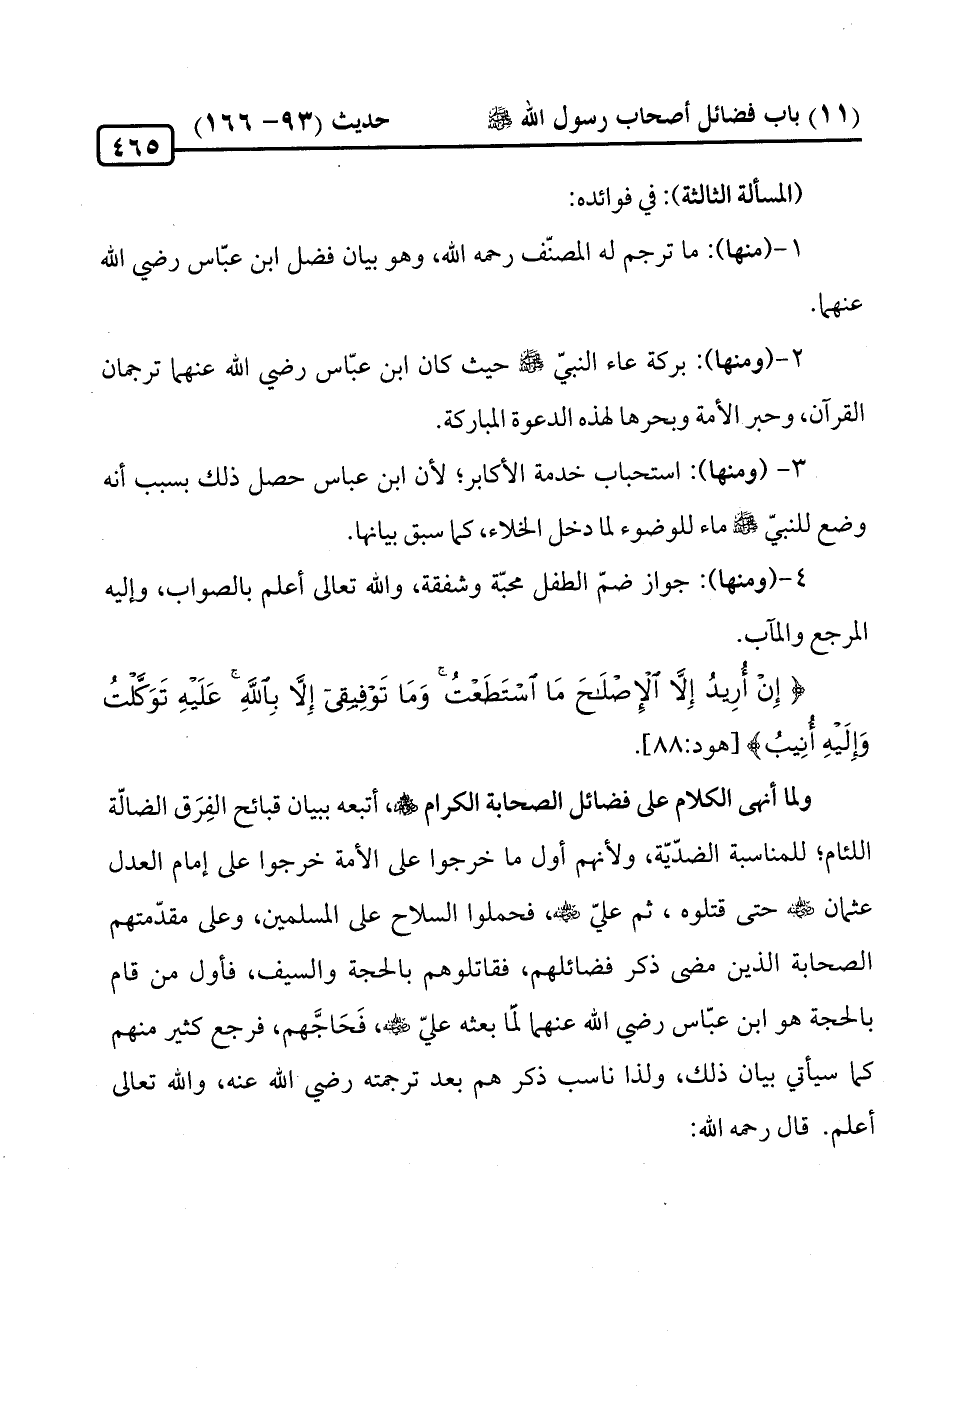 (١١) باب فضائل أصحاب رسول الله ﷺ حديث (٩٣- ١٦٦)
٤٦٥
(المسألة الثالثة): في فوائده:
١-(منها): ما ترجم له المصنّف رحمه الله، وهو بيان فضل ابن عبّاس رضي الله
عنهما.
٢-(ومنها): بركة عاء النبيّ ﷺ حيث كان ابن عبّاس رضي الله عنهما ترجمان
القرآن، وحبر الأمة وبحرها لهذه الدعوة المباركة.
٣- (ومنها): استحباب خدمة الأكابر؛ لأن ابن عباس حصل ذلك بسبب أنه
وضع للنبيّ ﷺ ماء للوضوء لما دخل الخلاء، كما سبق بيانها.
٤-(ومنها): جواز ضمّ الطفل محبّة وشفقة، والله تعالى أعلم بالصواب، وإليه
المرجع والمآب.
﴿ إِنْ أُرِيدُ إِلَّا ٱلْإِصْلَٰحَ مَا ٱسْتَطَعْتُ ۚ وَمَا تَوْفِيقِىٓ إِلَّا بِٱللَّهِ ۚ عَلَيْهِ تَوَكَّلْتُ
وَإِلَيْهِ أُنِيبُ﴾ [هود:٨٨].
ولما أنهى الكلام على فضائل الصحابة الكرام ﷺ، أتبعه ببيان قبائح الفِرَق الضالّة
اللئام؛ للمناسبة الضدّيّة، ولأنهم أول ما خرجوا على الأمة خرجوا على إمام العدل
عثمان رضي الله عنه حتى قتلوه ، ثم عليّ رضي الله عنه، فحملوا السلاح على المسلمين، وعلى مقدّمتهم
الصحابة الذين مضى ذكر فضائلهم، فقاتلوهم بالحجة والسيف، فأول من قام
بالحجة هو ابن عبّاس رضي الله عنهما لمّا بعثه عليّ رضي الله عنه، فَحَاجَّهم، فرجع كثير منهم
كما سيأتي بيان ذلك، ولذا ناسب ذكر هم بعد ترجمته رضي الله عنه، والله تعالى
أعلم. قال رحمه الله: